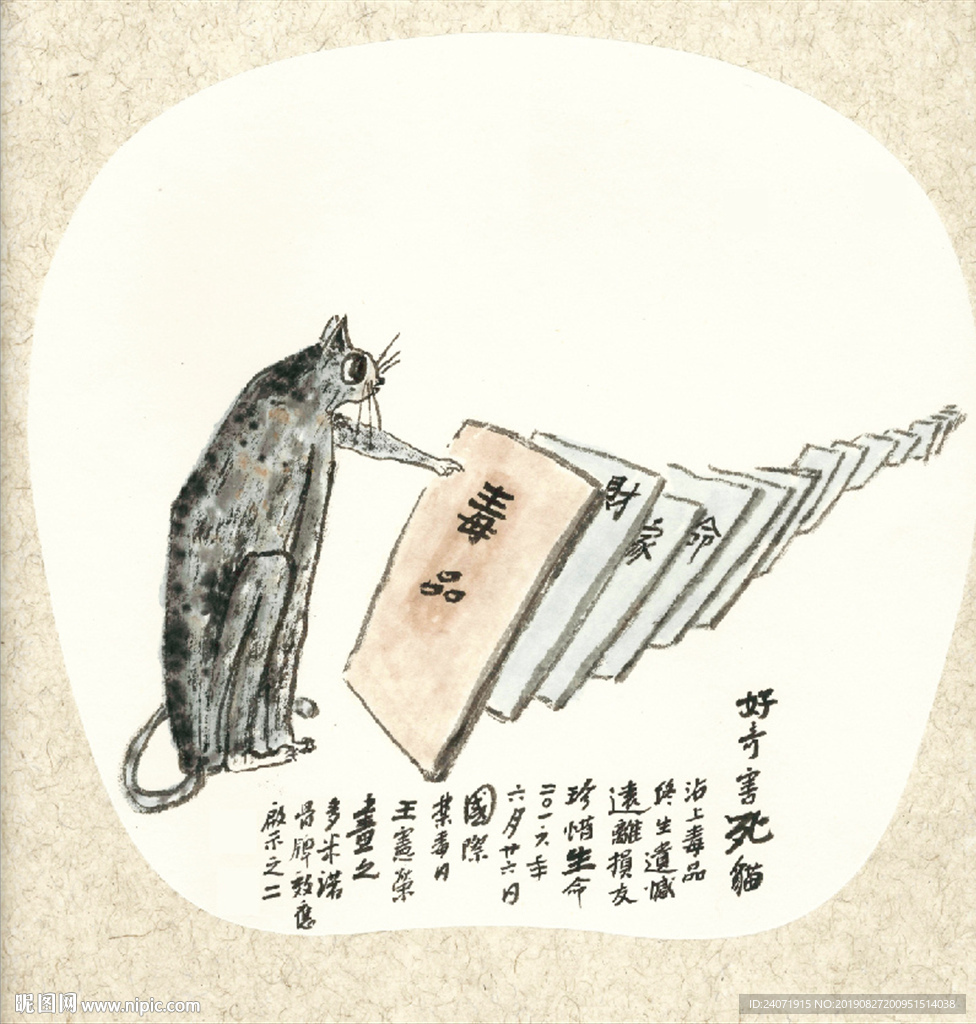 毒品
財
家
命
好奇害死貓
沾上毒品
終生遺憾
遠離損友
珍惜生命
二〇一六年
六月廿六日
國際
禁毒日
王憲榮
畫之
多米諾
骨牌效應
啟示之二
昵图网 www.nipic.com
ID:24071915 NO:20190827200951514038